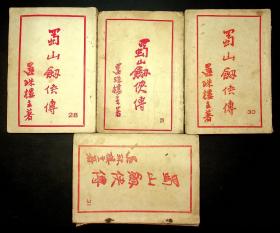 蜀山劍俠傳
還珠樓主著
28
蜀山劍俠傳
還珠樓主著
蜀山劍俠傳
還珠樓主著
30
蜀山劍俠傳
還珠樓主著
31